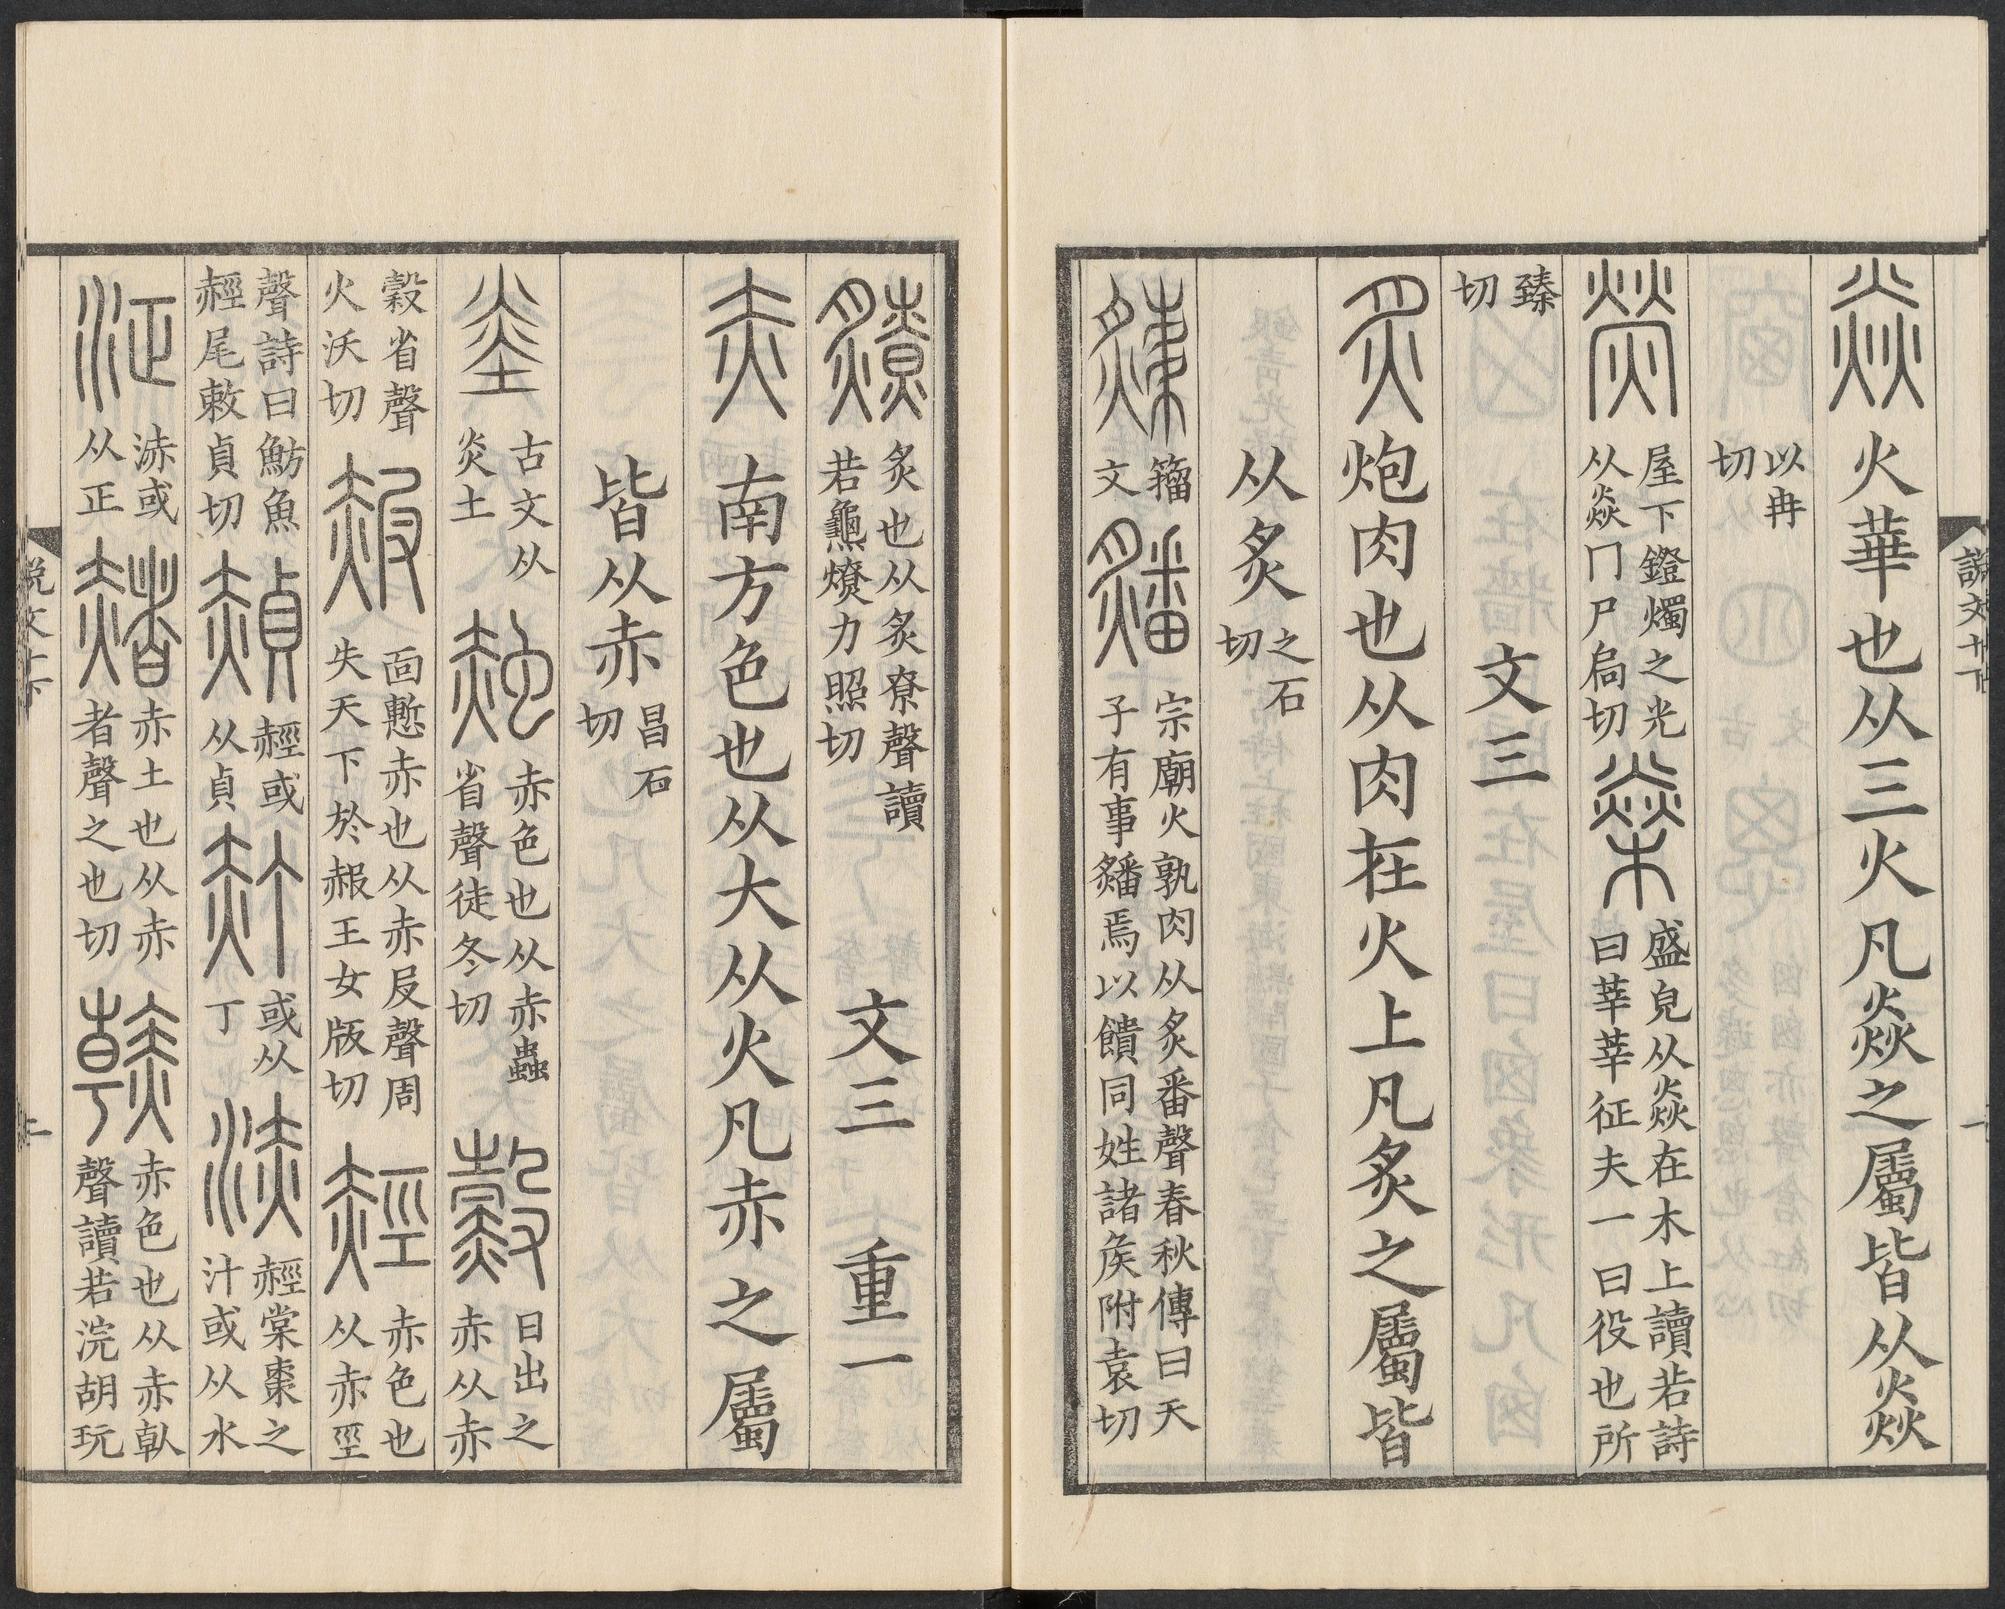 說文十下
一
焱火華也从三火凡焱之屬皆从焱
以冉切
熒屋下鐙燭之光从焱冂戶扃切燊盛皃从焱在木上讀若詩曰莘莘征夫一曰役也所
臻切 文三
炙炮肉也从肉在火上凡炙之屬皆
从炙之石切
𤓌籒文䊩宗廟火孰肉从炙番聲春秋傳曰天子有事䊩焉以饋同姓諸矦附袁切
䊫炙也从炙尞聲讀若龜燎力照切 文三 重一
赤南方色也从大从火凡赤之屬
皆从赤昌石切
烾古文从炎土赨赤色也从赤蟲省聲徒冬切䊬日出之赤从赤
㱿省聲火沃切赧面慙赤也从赤𠬝聲周失天下於赧王女版切䞓赤色也从赤巠
聲詩曰魴魚䞓尾敕貞切赬䞓或从貞䞓或从丁浾䞓棠棗之汁或从水
泟浾或从正赭赤土也从赤者聲之也切赣赤色也从赤倝聲讀若浣胡玩
說文十下
二